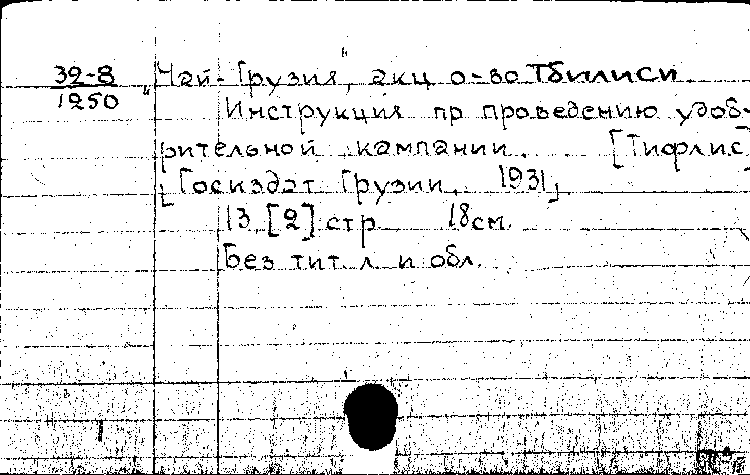 32-8
1250
"Чай-Грузия", акц о-во Тбилиси
Инструкция пр проведению удоб-
рительной кампании. [Тифлис]
[Госиздат Грузии. 1931]
13 [2] стр 18см.
Без тит. л. и обл.